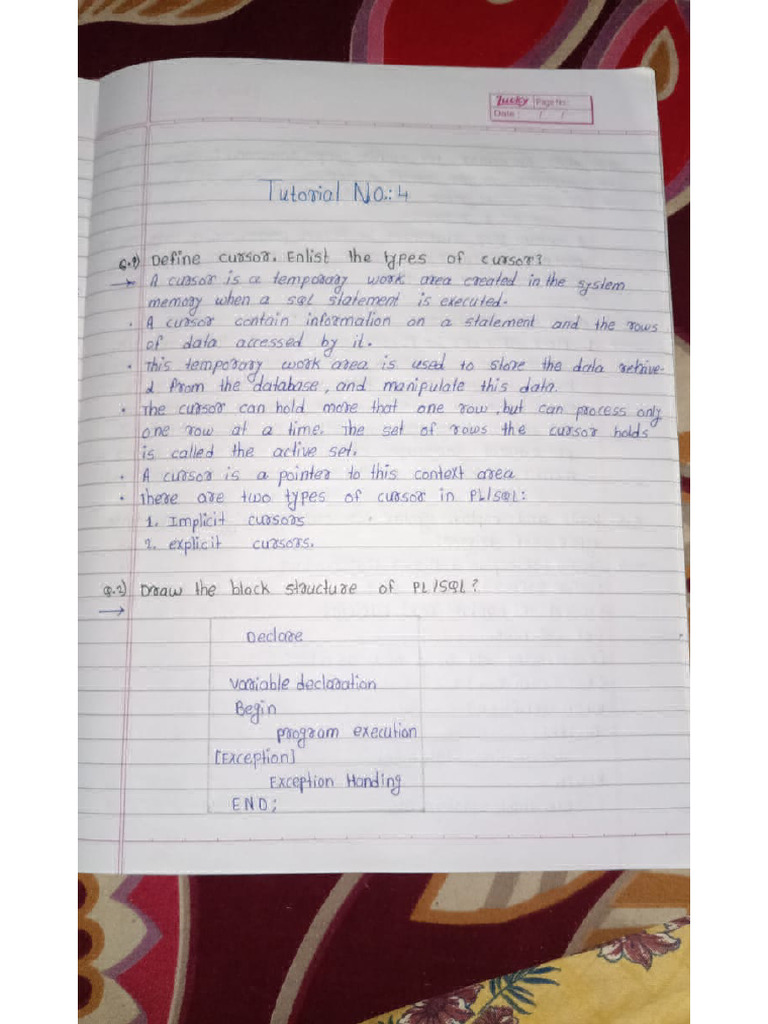 Lucky Page No:
Date : / /
Tutorial No.: 4
Q.1) Define cursor. Enlist the types of cursor?
→ A cursor is a temporary work area created in the system
memory when a sql statement is executed.
• A cursor contain information on a statement and the rows
of data accessed by it.
• This temporary work area is used to store the data retrive-
d from the database, and manipulate this data.
• The cursor can hold more that one row, but can process only
one row at a time. The set of rows the cursor holds
is called the active set.
• A cursor is a pointer to this context area
• There are two types of cursor in PL/SQL:
1. Implicit cursors
2. explicit cursors.
Q.2) Draw the block structure of PL/SQL?
→
Declare
variable declaration
Begin
program execution
[Exception]
Exception Handing
END;